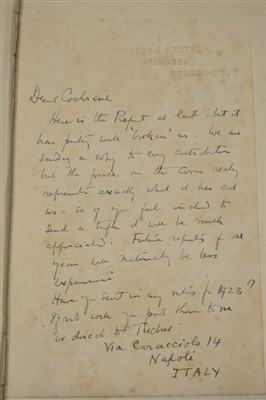 RECTORY,
WINDSOR,
BERKSHIRE.
Dear Cochrane
Here is the Report at last. but it
has pretty well 'broken' us. We are
sending a copy to every contributor
but the price on the cover really
represents exactly what it has cost
us. so if you feel inclined to
send a it will be much
appreciated. Future reports for one
year will naturally be less
expensive
Have you sent in any notes for 1923?
If not will you post them to me
or direct to Tucker.
Via Caracciolo 14
Napoli
ITALY